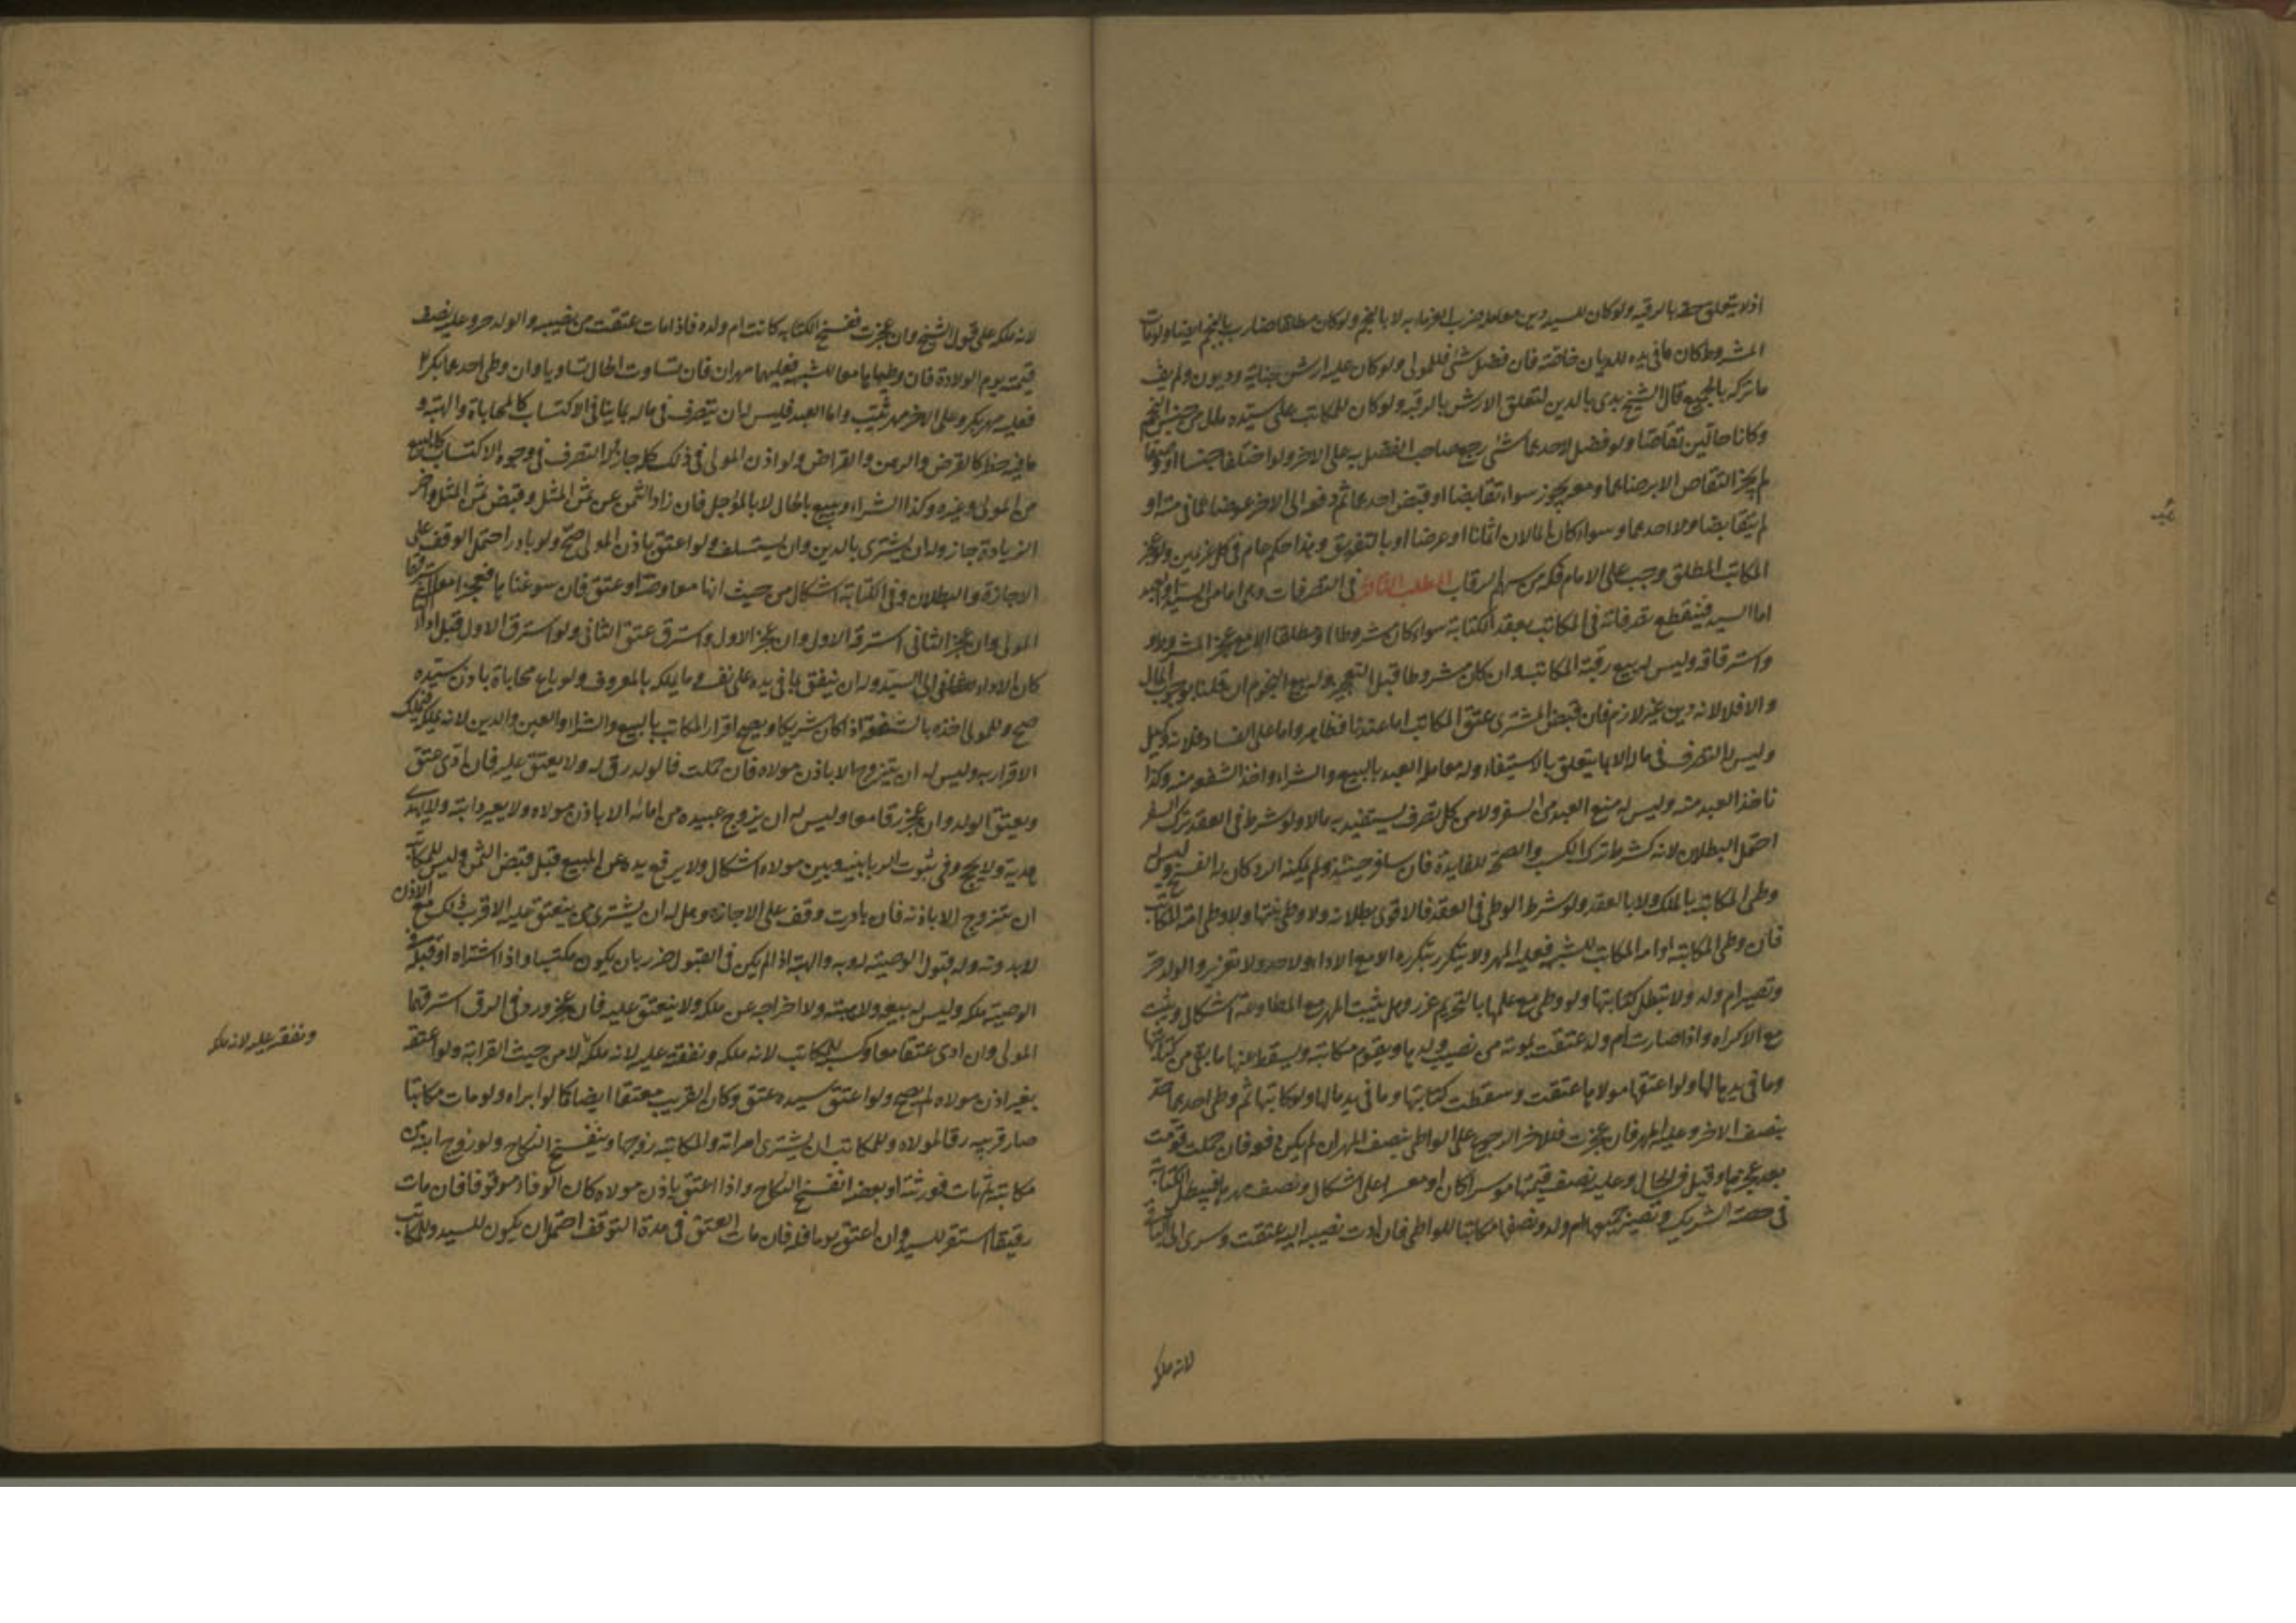 اذ لا يتعلق حقه بالرقبة ولو كان للسيد دين معاملة ضرب الغرماء به لا بالنجم ولو كان مطلقا ضارب بالنجم ايضا ولو مات
المشروط كان ما في يده للديان خاصة فان فضل شئ فللمولى ولو كان عليه ارش جناية وديون ولم يف
ما تركه بالجميع قال الشيخ بدئ بالدين لتعلق الارش بالرقبة ولو كان للمكاتب على سيده مال من جنس النجم
وكانا حالين تقاصا ولو فضل لاحدهما شئ رجع صاحب الفضل به على الاخر ولو اختلفا جنسا او وصفا
لم يجز التقاص الا برضاهما ومعه يجوز سواء تقابضا او قبض احدهما ثم دفعه الى الاخر عوضا عما في ذمته او
لم يتقابضا ولا احدهما وسواء كان المالان اثمانا او عرضا او بالتفريق وهذا حكم عام في كل غريمين ولو عجز
المكاتب المطلق وجب على الامام فكه من سهم الرقاب المطلب الثالث في التصرفات وهي اما من السيد او العبد
اما السيد فينقطع تصرفاته في المكاتب بعقد الكتابة سواء كان مشروطا او مطلقا الا مع عجز المشروط و
واسترقاقه وليس له بيع رقبة المكاتب وان كان مشروطا قبل التعجيز وله بيع النجوم ان قلنا بوجوب المال
والا فلا لانه دين غير لازم فان قبض المشترى عتق المكاتب اما عندنا فظاهر واما على الفساد فلانه كوكيل
وليس له التصرف في ماله الا بما يتعلق بالاستيفاء وله معاملة العبد بالبيع والشراء واخذ الشفعة منه وكذا
ياخذ العبد منه وليس له منع العبد من السفر ولا من كل تصرف يستفيد به مالا ولو شرط في العقد ترك السفر
احتمل البطلان لانه كشرط ترك الكسب والصحة للفايدة فان سافر حينئذ ولم يمكنه الرد كان له الفسخ وليس له
وطئ المكاتبة بالملك ولا بالعقد ولو شرط الوطئ في العقد فالاقوى بطلانه ولا وطئ بنتها ولا وطئ امة المكاتب
فان وطئ المكاتبة او امة المكاتب للشبهة فعليه المهر ولا يتكرر بتكرره الا مع الاداء ولا حد ولا تعزير والولد حر
وتصير ام ولد ولا تبطل كتابتها ولو وطئ مع علمها بالتحريم عزر وهل يثبت المهر مع المطاوعة اشكال ويثبت
مع الاكراه واذا صارت ام ولد عتقت بموته من نصيب ولدها ويقوم مكاتبة ويسقط عنها ما بقي من كتابتها
وما في يدها لها ولو اعتقها مولاها عتقت وسقطت كتابتها وما في يدها لها ولو كاتبها ثم وطئ احدهما عزر
بنصف الاخر وعليه المهر فان عجزت فللاخر الرجوع على الواطئ بنصف المهر ان لم يكن دفعه فان حملت قومت
بعد عجزها وقيل في الحال وعليه نصف قيمتها موسرا كان او معسرا على اشكال ونصف مهرها فيبطل الكتابة
في حصة الشريك وتصير جميعها ام ولد ونصفها مكاتبا للواطئ فان ادت نصيبه اليه عتقت وسرى الى الباقى
لانه ملكه
لانه ملكه على قول الشيخ وان عجزت ففسخ الكتابة كانت ام ولده فاذا مات عتقت من نصيبه والولد حر وعليه نصف
قيمته يوم الولادة فان وطياها معا للشبهة فعليهما مهران فان تساوت الحال تساويا وان وطئ احدهما بكرا
فعليه مهر بكر وعلى الاخر مهر ثيب واما العبد فليس له ان يتصرف في ماله بما ينافي الاكتساب كالمحاباة والهبة و
ما فيه خطر كالقرض والرهن والقراض ولو اذن المولى في ذلك كله جاز وله التصرف في وجوه الاكتساب كالبيع
من المولى وغيره وكذا الشراء ويبيع بالحال لا بالمؤجل فان زاد الثمن عن ثمن المثل وقبض ثمن المثل واخر
الزيادة جاز وله ان يشترى بالدين وان يستسلف ولو اعتق باذن المولى صح ولو بادر احتمل الوقف على
الاجازة والبطلان وفي الكتابة اشكال من حيث انها معاوضة او عتق فان سوغناها فعجزا معا استرقهما
المولى وان عجز الثاني استرقه الاول وان عجز الاول واسترق عتق الثاني ولو استرق الاول قبل اداء الثاني
كان الاداء من الثاني الى السيد وله ان ينفق مما في يده على نفسه وما يملكه بالمعروف ولو باع محاباة باذن سيده
صح وللمولى اخذه بالشفعة اذا كان شريكا ويصح اقرار المكاتب بالبيع والشراء والعين والدين لانه يملكه فيملك
الاقرار به وليس له ان يتزوج الا باذن مولاه فان حملت فالولد رق له ولا يعتق عليه فان ادى عتق
وعتق الولد وان عجز رقا معا وليس له ان يزوج عبيده من امائه الا باذن مولاه ولا يعير دابته ولا يهدى
هدية ولا يحج وفي ثبوت الربا بينه وبين مولاه اشكال ولا يرفع يده عن المبيع قبل قبض الثمن وليس للمكاتبة
ان تتزوج الا باذنه فان بادرت وقف على الاجازة وهل له ان يشترى من ينعتق عليه الاقرب ذلك مع الاذن
لا بدونه وله قبول الوصية له به والهبة اذا لم يكن في القبول ضرر بان يكون مكتسبا واذا اشتراه او قبل
الوصية ملكه وليس له بيعه ولا هبته ولا اخراجه عن ملكه ولا ينعتق عليه فان عجز ورد في الرق استرقهما
المولى وان ادى عتقا معا وكسبه للمكاتب لانه ملكه ونفقته عليه لانه ملكه لا من حيث القرابة ولو اعتقه
بغير اذن مولاه لم يصح ولو اعتق سيده عتق وكان القريب معتقا ايضا كما لو ابراه ولو مات مكاتبا
صار قريبه رقا لمولاه وللمكاتب ان يشترى امراته وللمكاتبة زوجها وينفسخ النكاح ولو زوج ابنته من
مكاتبه ثم مات فورثته او بعضه انفسخ النكاح واذا اعتق باذن مولاه كان الولاء موقوفا فان مات
رقيقا استقر للسيد وان اعتق يوما فله فان مات المعتق في مدة التوقف احتمل ان يكون للسيد وللمكاتب
ونفقته عليه لانه ملكه